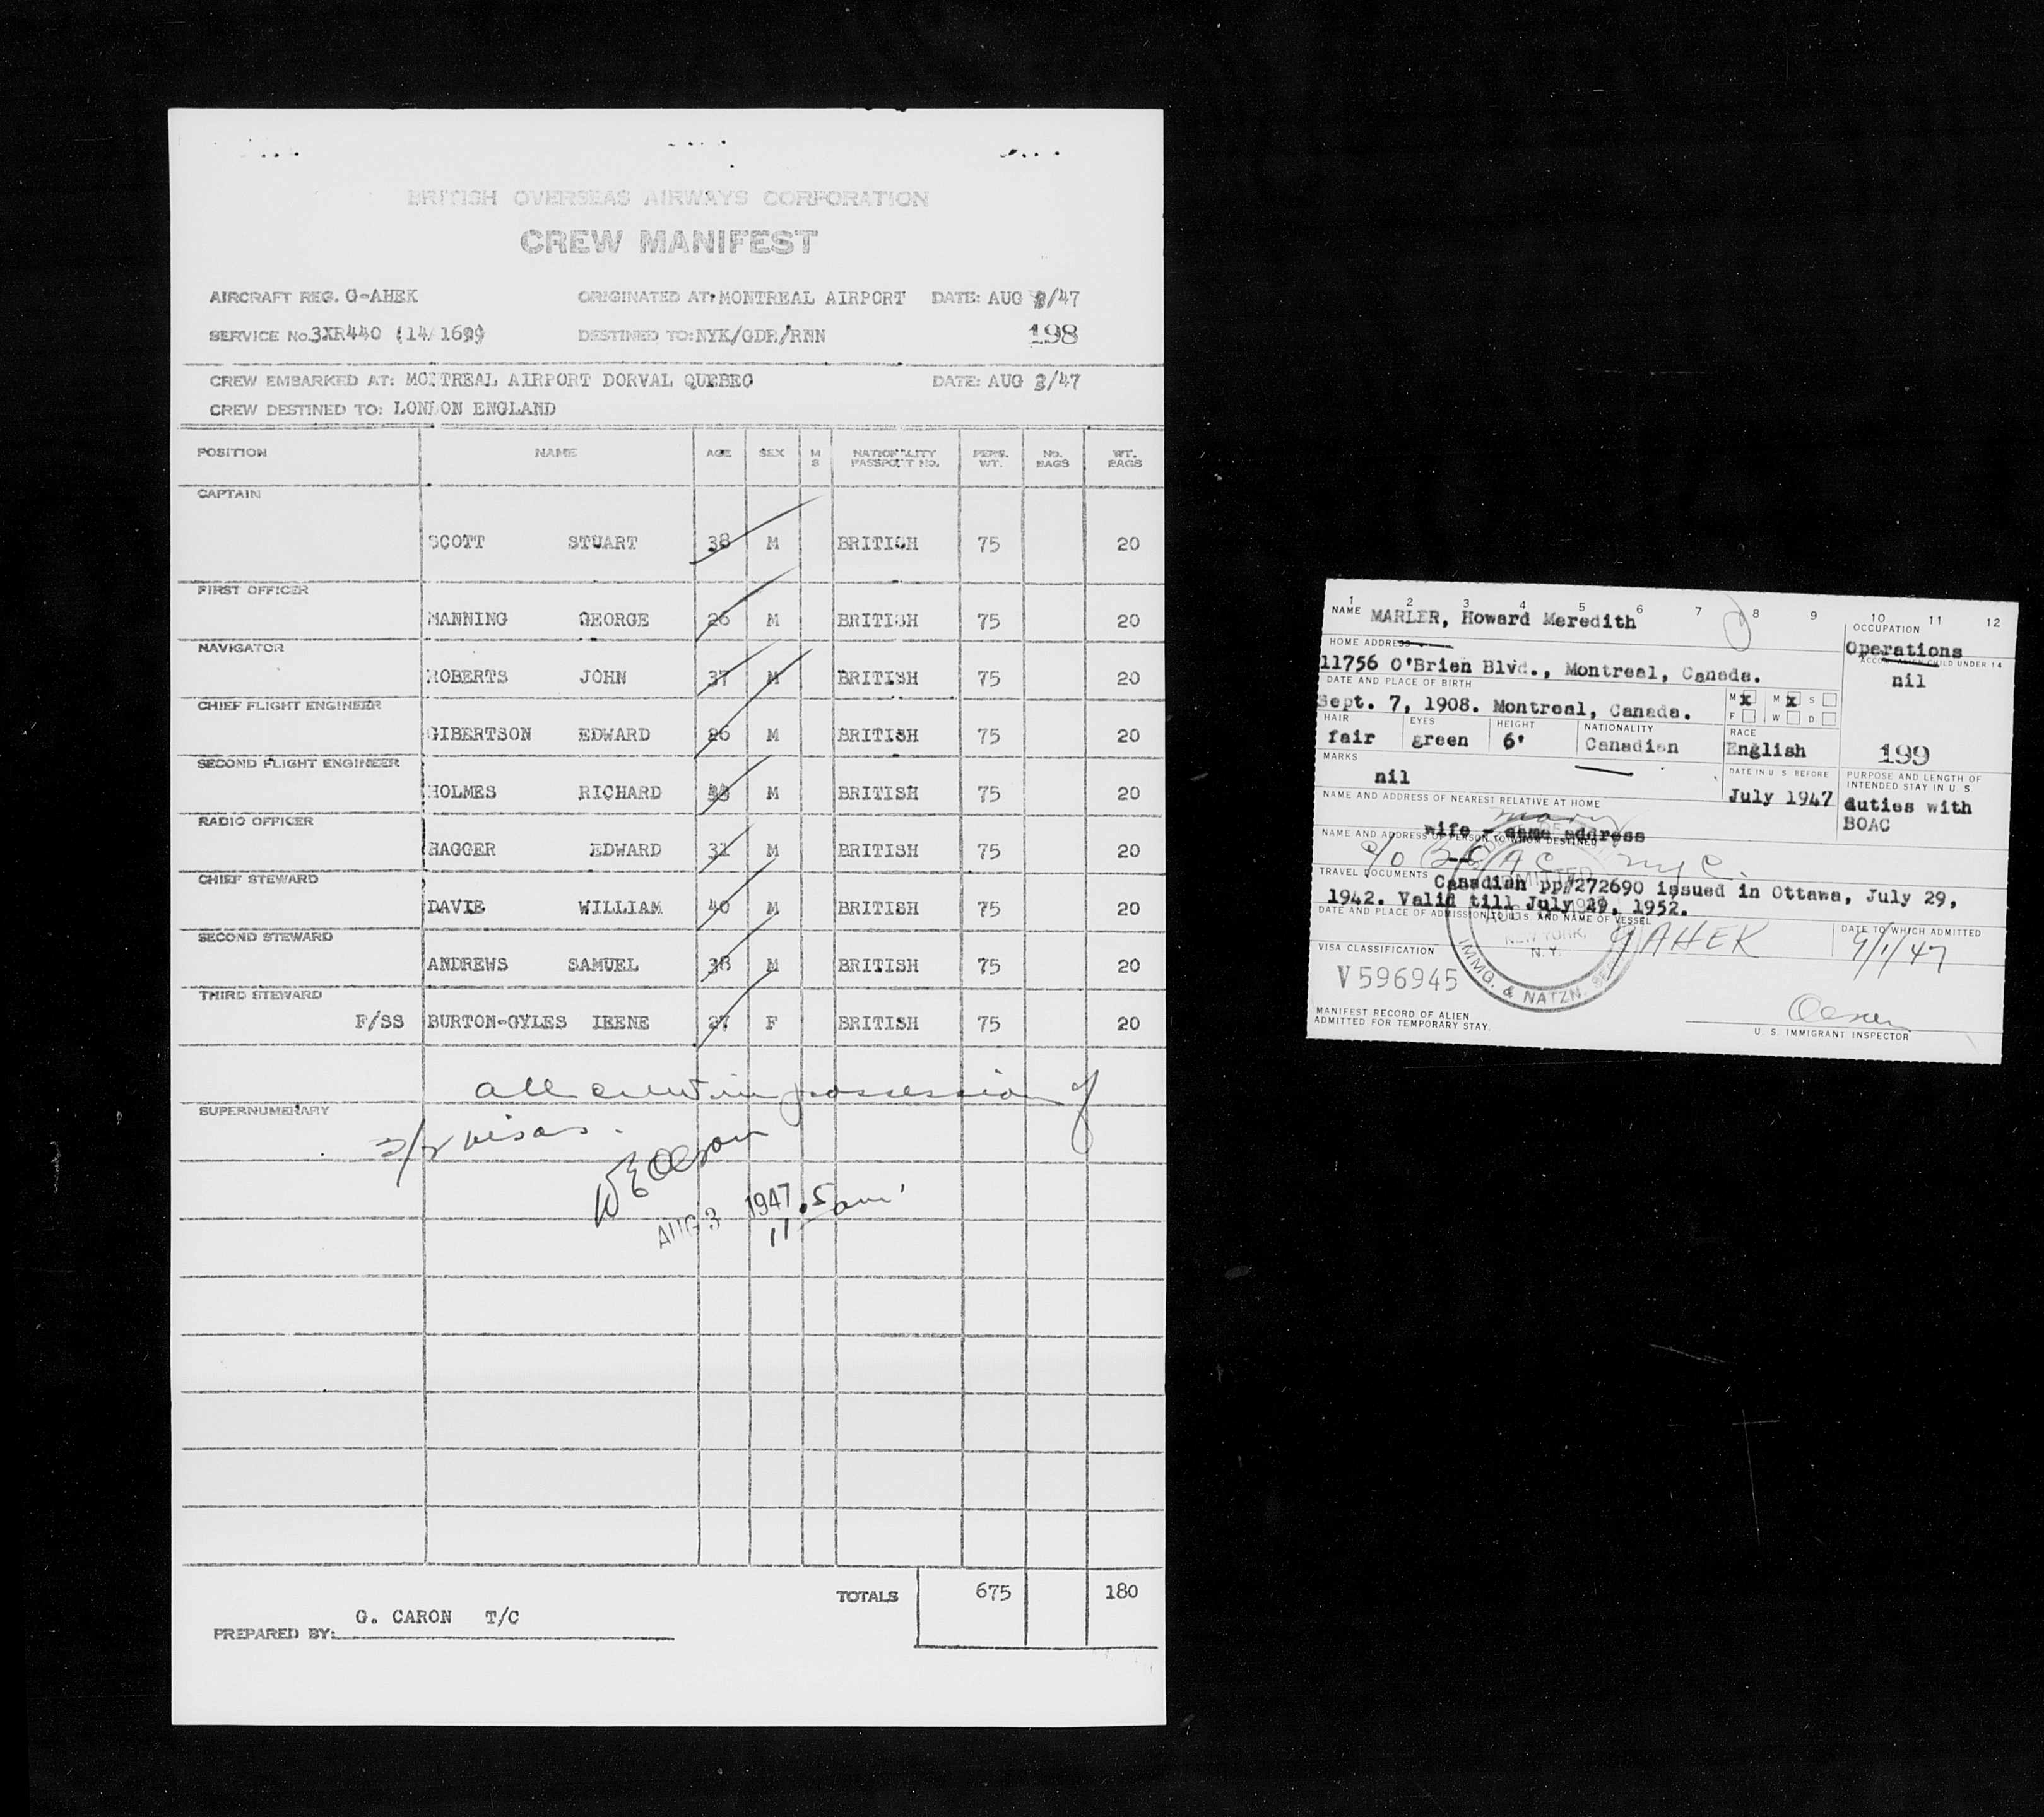 BRITISH OVERSEAS AIRWAYS CORPORATION
CREW MANIFEST
AIRCRAFT REG. G-AHEK ORIGINATED AT: MONTREAL AIRPORT DATE: AUG /47
SERVICE No. 3XR440 DESTINED TO: NYK/GDR/RNN 198
CREW EMBARKED AT: MONTREAL AIRPORT DORVAL QUEBEC DATE: AUG 3/47
CREW DESTINED TO: LONDON ENGLAND
POSITION NAME AGE SEX M S NATIONALITY PASSPORT NO. PERS. WT. NO. BAGS WT. BAGS
CAPTAIN
SCOTT STUART 38 M BRITISH 75 20
FIRST OFFICER
MANNING GEORGE 26 M BRITISH 75 20
NAVIGATOR
ROBERTS JOHN 37 M BRITISH 75 20
CHIEF FLIGHT ENGINEER
GIBERTSON EDWARD 26 M BRITISH 75 20
SECOND FLIGHT ENGINEER
HOLMES RICHARD M BRITISH 75 20
RADIO OFFICER
HAGGER EDWARD 31 M BRITISH 75 20
CHIEF STEWARD
DAVIE WILLIAM 40 M BRITISH 75 20
SECOND STEWARD
ANDREWS SAMUEL 38 M BRITISH 75 20
THIRD STEWARD
F/SS BURTON-GYLES IRENE 27 F BRITISH 75 20
all crew in possession of
SUPERNUMERARY
visas.
W E Olson
AUG 3 1947
TOTALS 675 180
G. CARON T/C
PREPARED BY:
1 2 3 4 5 6 7 8 9 10 11 12
NAME MARLER, Howard Meredith OCCUPATION
HOME ADDRESS Operations
11756 O'Brien Blvd., Montreal, Canada. ACCOM. ALIEN CHILD UNDER 14
DATE AND PLACE OF BIRTH nil
Sept. 7, 1908. Montreal, Canada. M X F M X S W D
HAIR EYES HEIGHT NATIONALITY RACE
fair green 6' Canadian English 199
MARKS DATE IN U S BEFORE PURPOSE AND LENGTH OF INTENDED STAY IN U. S.
nil July 1947 duties with BOAC
NAME AND ADDRESS OF NEAREST RELATIVE AT HOME
Mary
wife - same address
NAME AND ADDRESS OF PERSON TO WHOM DESTINED
c/o B O A C NYC.
TRAVEL DOCUMENTS Canadian pp#272690 issued in Ottawa, July 29,
1942. Valid till July 29, 1952.
DATE AND PLACE OF ADMISSION TO U. S. AND NAME OF VESSEL DATE TO WHICH ADMITTED
GAHEK 9/1/47
ADMITTED
NEW YORK, N. Y.
IMMG. & NATZN.
VISA CLASSIFICATION
V596945
MANIFEST RECORD OF ALIEN
ADMITTED FOR TEMPORARY STAY.
Olson
U. S. IMMIGRANT INSPECTOR